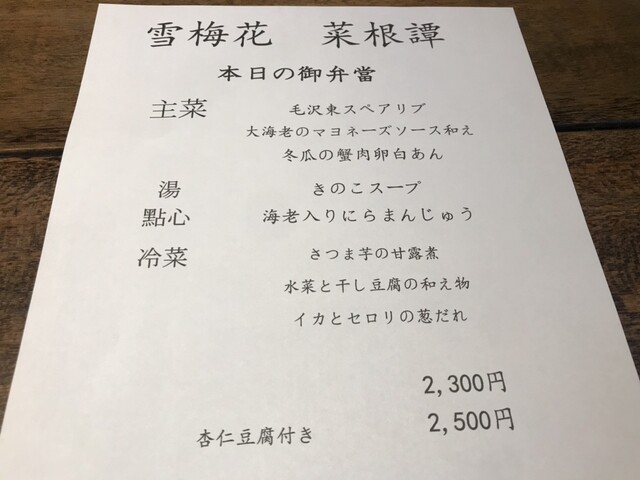 雪梅花　菜根譚
本日の御弁當
主菜　毛沢東スペアリブ
大海老のマヨネーズソース和え
冬瓜の蟹肉卵白あん
湯　きのこスープ
點心　海老入りにらまんじゅう
冷菜　さつま芋の甘露煮
水菜と干し豆腐の和え物
イカとセロリの葱だれ
2,300円
杏仁豆腐付き　2,500円